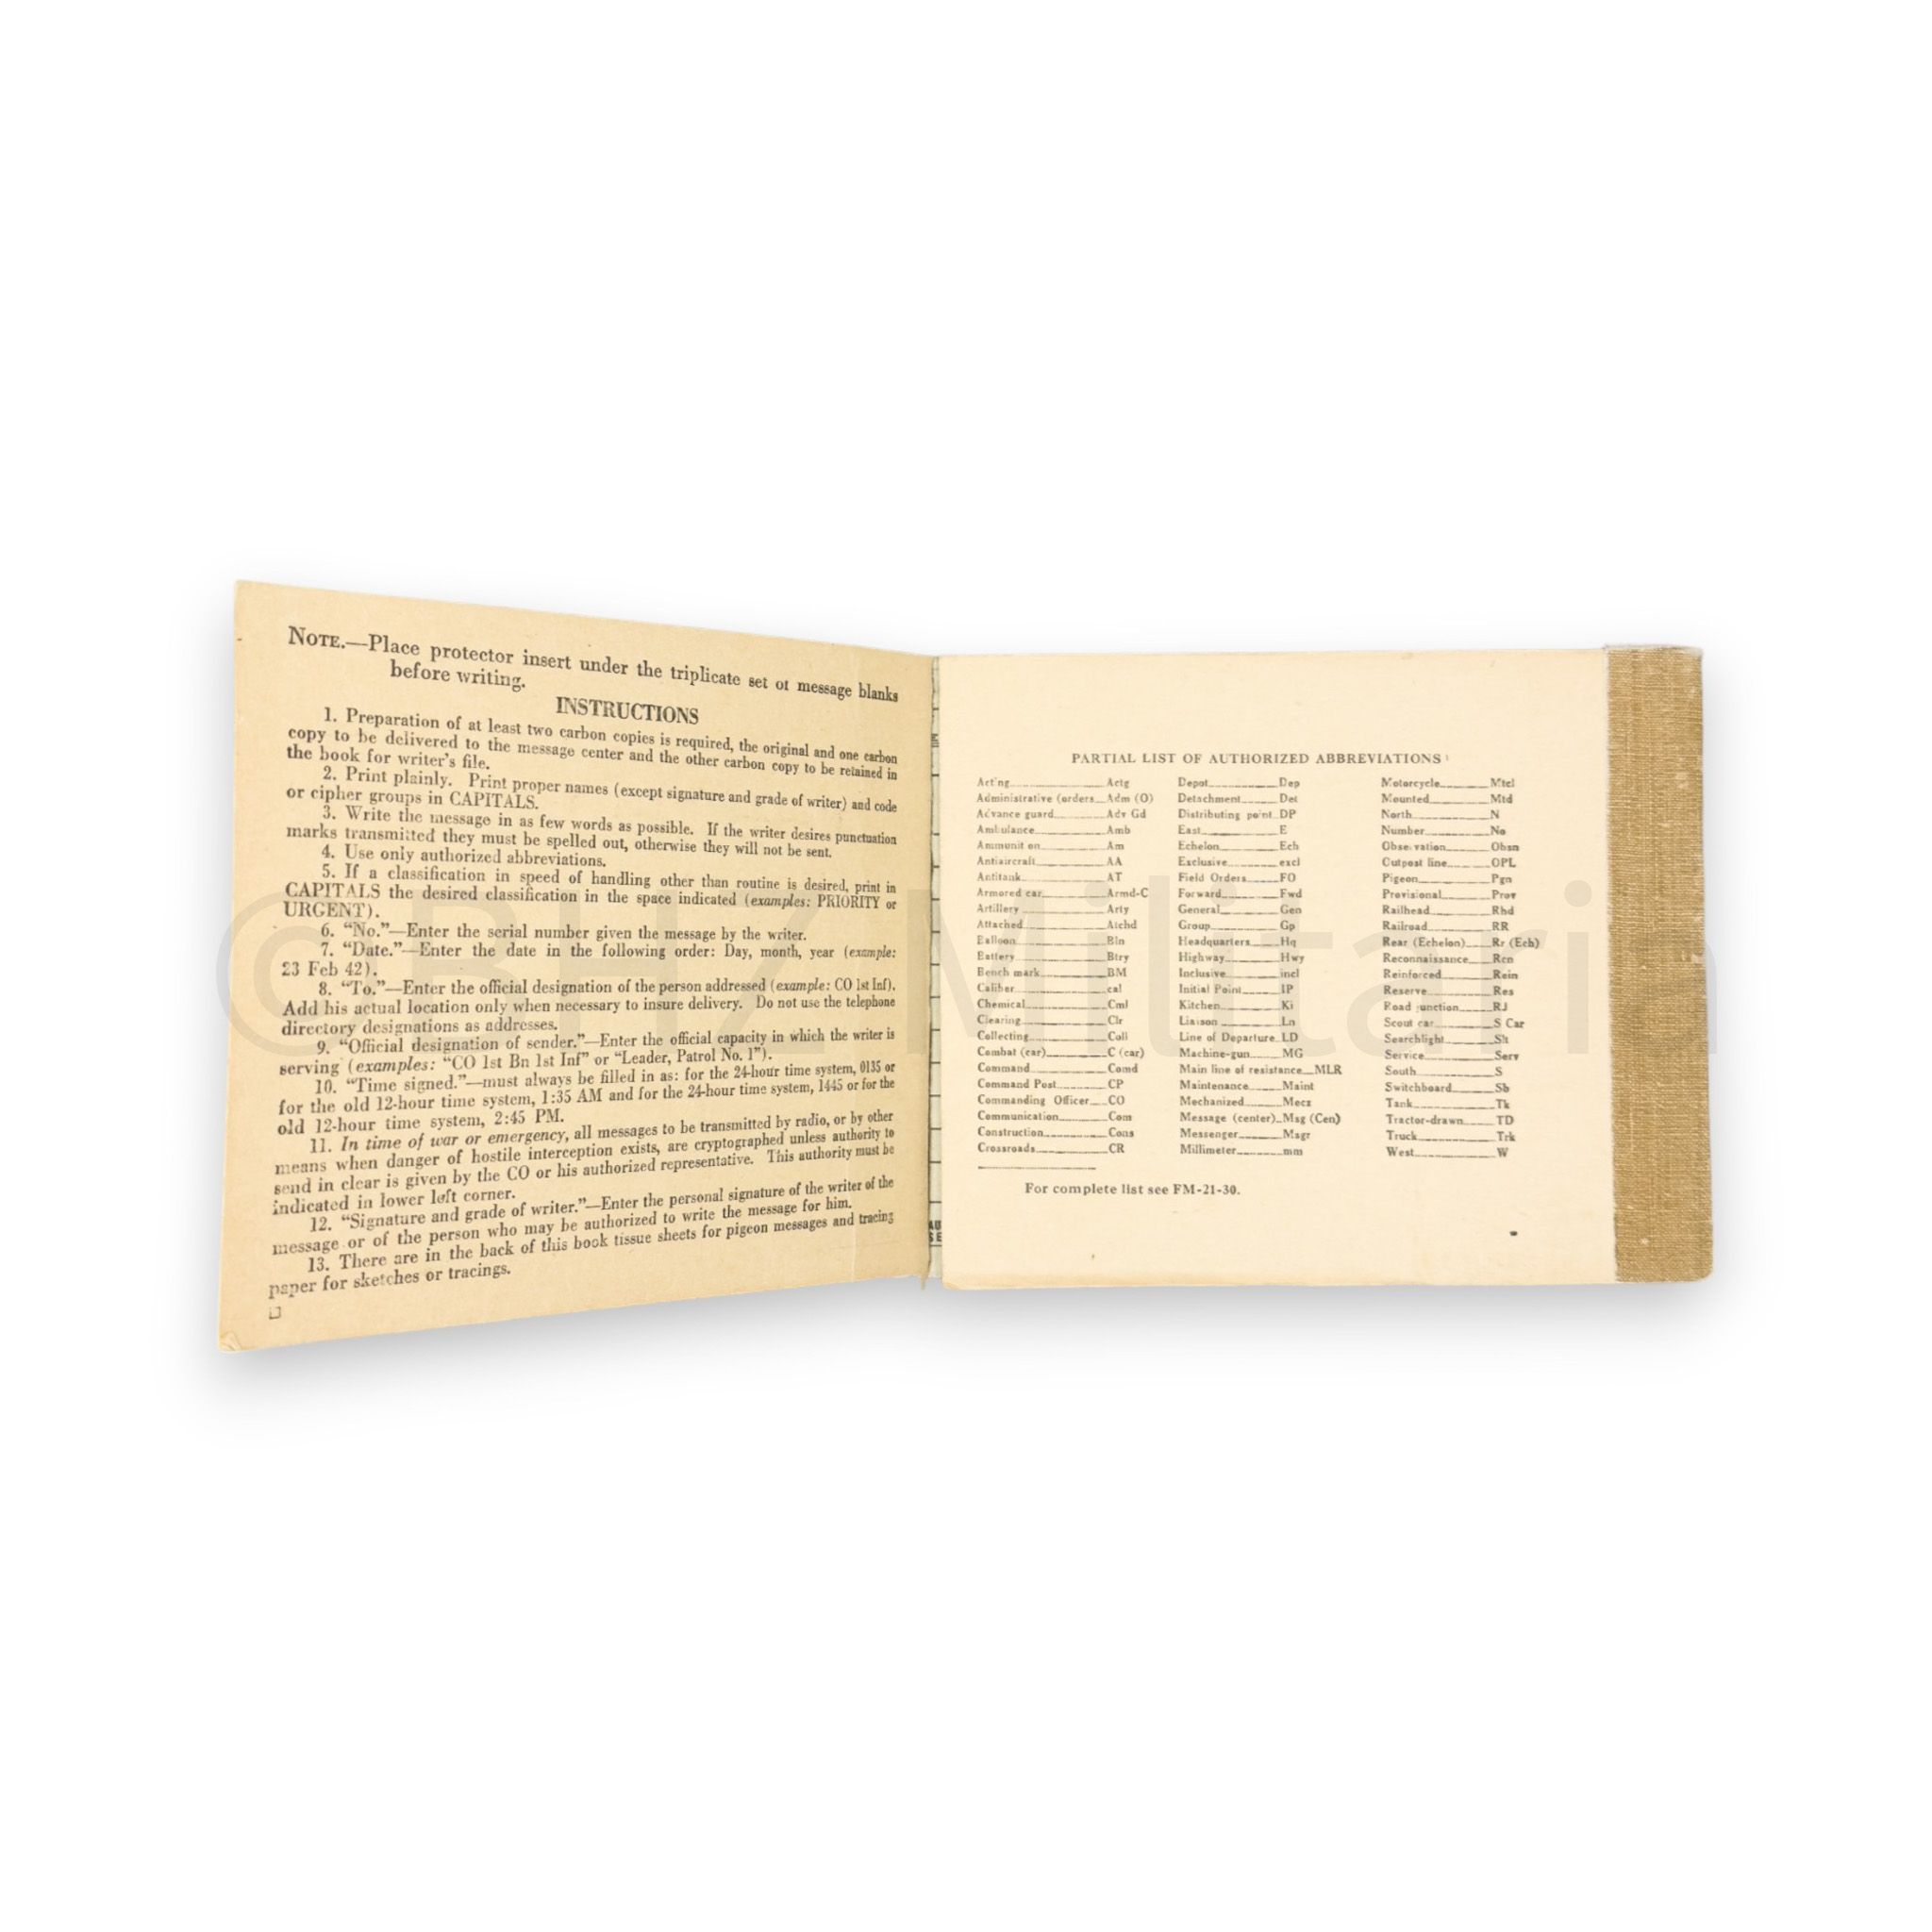 NOTE.—Place protector insert under the triplicate set of message blanks
before writing.
INSTRUCTIONS
1. Preparation of at least two carbon copies is required, the original and one carbon
copy to be delivered to the message center and the other carbon copy to be retained in
the book for writer's file.
2. Print plainly. Print proper names (except signature and grade of writer) and code
or cipher groups in CAPITALS.
3. Write the message in as few words as possible. If the writer desires punctuation
marks transmitted they must be spelled out, otherwise they will not be sent.
4. Use only authorized abbreviations.
5. If a classification in speed of handling other than routine is desired, print in
CAPITALS the desired classification in the space indicated (examples: PRIORITY or
URGENT).
6. “No.”—Enter the serial number given the message by the writer.
7. “Date.”—Enter the date in the following order: Day, month, year (example:
23 Feb 42).
8. “To.”—Enter the official designation of the person addressed (example: CO 1st Inf).
Add his actual location only when necessary to insure delivery. Do not use the telephone
directory designations as addresses.
9. “Official designation of sender.”—Enter the official capacity in which the writer is
serving (examples: “CO 1st Bn 1st Inf” or “Leader, Patrol No. 1”).
10. “Time signed.”—must always be filled in as: for the 24-hour time system, 0135 or
for the old 12-hour time system, 1:35 AM and for the 24-hour time system, 1445 or for the
old 12-hour time system, 2:45 PM.
11. In time of war or emergency, all messages to be transmitted by radio, or by other
means when danger of hostile interception exists, are cryptographed unless authority to
send in clear is given by the CO or his authorized representative. This authority must be
indicated in lower left corner.
12. “Signature and grade of writer.”—Enter the personal signature of the writer of the
message or of the person who may be authorized to write the message for him.
13. There are in the back of this book tissue sheets for pigeon messages and tracing
paper for sketches or tracings.
PARTIAL LIST OF AUTHORIZED ABBREVIATIONS ¹
Acting Actg
Administrative (orders Adm (O)
Advance guard Adv Gd
Ambulance Amb
Ammunition Am
Antiaircraft AA
Antitank AT
Armored car Armd-C
Artillery Arty
Attached Atchd
Balloon Bln
Battery Btry
Bench mark BM
Caliber cal
Chemical Cml
Clearing Clr
Collecting Coll
Combat (car) C (car)
Command Comd
Command Post CP
Commanding Officer CO
Communication Com
Construction Cons
Crossroads CR
Depot Dep
Detachment Det
Distributing point DP
East E
Echelon Ech
Exclusive excl
Field Orders FO
Forward Fwd
General Gen
Group Gp
Headquarters Hq
Highway Hwy
Inclusive incl
Initial Point IP
Kitchen Ki
Liaison Ln
Line of Departure LD
Machine-gun MG
Main line of resistance MLR
Maintenance Maint
Mechanized Mecz
Message (center) Msg (Cen)
Messenger Msgr
Millimeter mm
Motorcycle Mtcl
Mounted Mtd
North N
Number No
Observation Obsn
Outpost line OPL
Pigeon Pgn
Provisional Prov
Railhead Rhd
Railroad RR
Rear (Echelon) Rr (Ech)
Reconnaissance Rcn
Reinforced Rein
Reserve Res
Road junction RJ
Scout car S Car
Searchlight Slt
Service Serv
South S
Switchboard Sb
Tank Tk
Tractor-drawn TD
Truck Trk
West W
For complete list see FM-21-30.
AU
SE
© BHZ Militaria